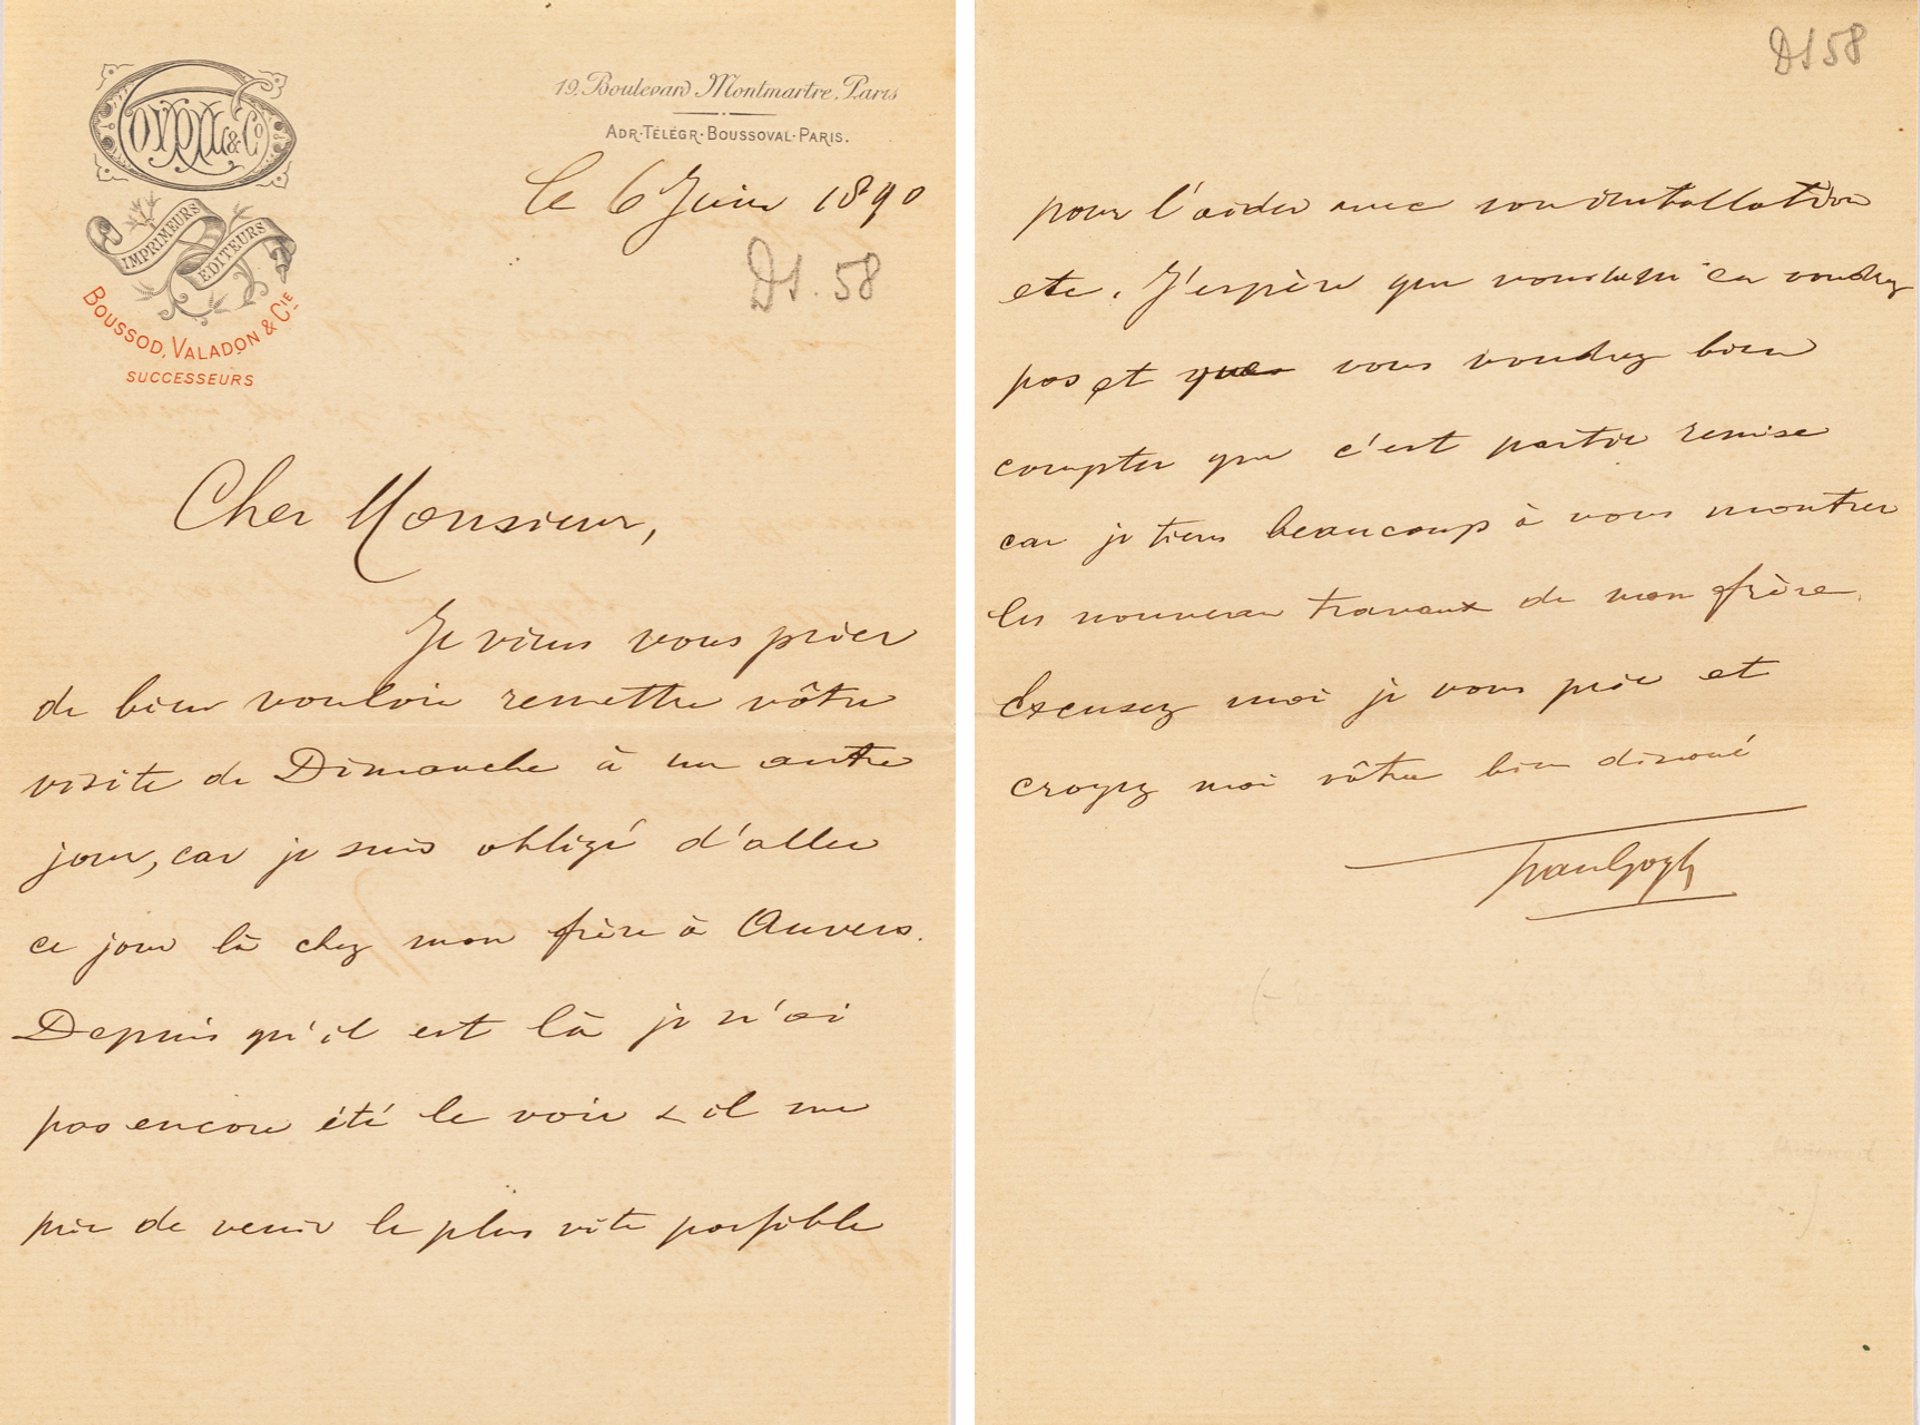 GOUPIL & Cº
IMPRIMEURS
EDITEURS
BOUSSOD, VALADON & CIE
SUCCESSEURS
19, Boulevard Montmartre, Paris
ADR·TÉLÉGR·BOUSSOVAL·PARIS.
le 6 Juin 1890
DS. 58
Cher Monsieur,
Je viens vous prier
de bien vouloir remettre vôtre
visite de Dimanche à un autre
jour, car je suis obligé d'aller
ce jour là chez mon frère à Auvers.
Depuis qu'il est là je n'ai
pas encore été le voir & il me
prie de venir le plus vite possible
DS 58
pour l'aider avec son installation
etc. J'espère que vous ne m'en voudrez
pas et que vous voudrez bien
compter que c'est partie remise
car je tiens beaucoup à vous montrer
les nouveau travaux de mon frère.
Excusez moi je vous prie et
croyez moi vôtre bien dévoué
TvanGogh